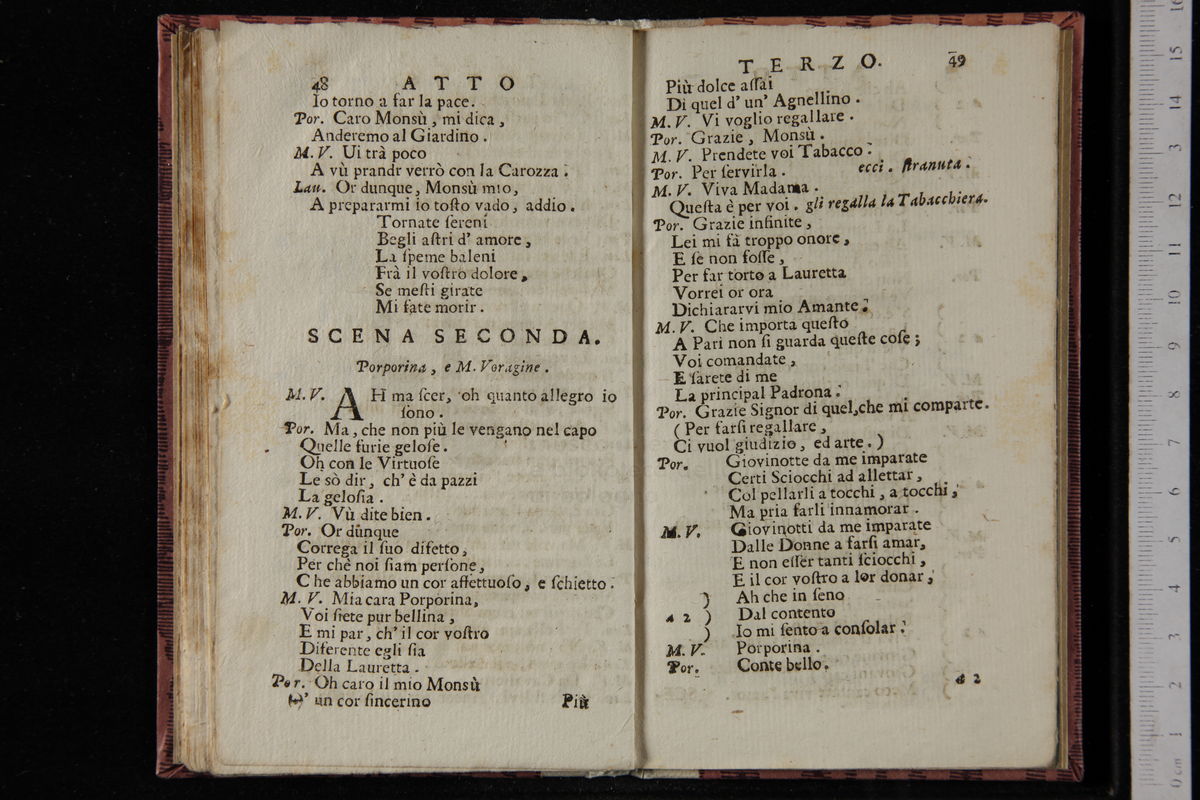 48 ATTO
Io torno a far la pace.
Por. Caro Monsù, mi dica,
Anderemo al Giardino.
M. V. Ui trà poco
A vù prandr verrò con la Carozza.
Lau. Or dunque, Monsù mio,
A prepararmi io toſto vado, addio.
Tornate ſereni
Begli aſtri d' amore,
La ſpeme baleni
Frà il voſtro dolore,
Se meſti girate
Mi fate morir.
SCENA SECONDA.
Porporina, e M. Voragine.
M. V. AH ma ſcer, oh quanto allegro io
ſono.
Por. Ma, che non più le vengano nel capo
Quelle furie geloſe.
Oh con le Virtuoſe
Le sò dir, ch' è da pazzi
La geloſia.
M. V. Vù dite bien.
Por. Or dùnque
Correga il ſuo difetto,
Per chè noi ſiam perſone,
Che abbiamo un cor affettuoſo, e ſchietto.
M. V. Mia cara Porporina,
Voi ſiete pur bellina,
E mi par, ch' il cor voſtro
Diferente egli ſia
Della Lauretta.
Por. Oh caro il mio Monsù
un cor ſincerino
Più
TERZO. 49
Più dolce aſſai
Di quel d' un' Agnellino.
M. V. Vi voglio regallare.
Por. Grazie, Monsù.
M. V. Prendete voi Tabacco.
Por. Per ſervirla. ecci. ſtranuta.
M. V. Viva Madama.
Queſta è per voi. gli regalla la Tabacchiera.
Por. Grazie infinite,
Lei mi fà troppo onore,
E ſe non foſſe,
Per far torto a Lauretta
Vorrei or ora
Dichiararvi mio Amante.
M. V. Che importa queſto
A Pari non ſi guarda queſte coſe;
Voi comandate,
E ſarete di me
La principal Padrona.
Por. Grazie Signor di quel, che mi comparte.
(Per farſi regallare,
Ci vuol giudizio, ed arte.)
Por. Giovinotte da me imparate
Certi Sciocchi ad allettar,
Col pellarli a tocchi, a tocchi,
Ma pria farli innamorar.
M. V. Giovinotti da me imparate
Dalle Donne a farſi amar,
E non eſſer tanti ſciocchi,
E il cor voſtro a lor donar,
) Ah che in ſeno
a 2 ) Dal contento
) Io mi ſento a conſolar.
M. V. Porporina.
Por. Conte bello.
a 2